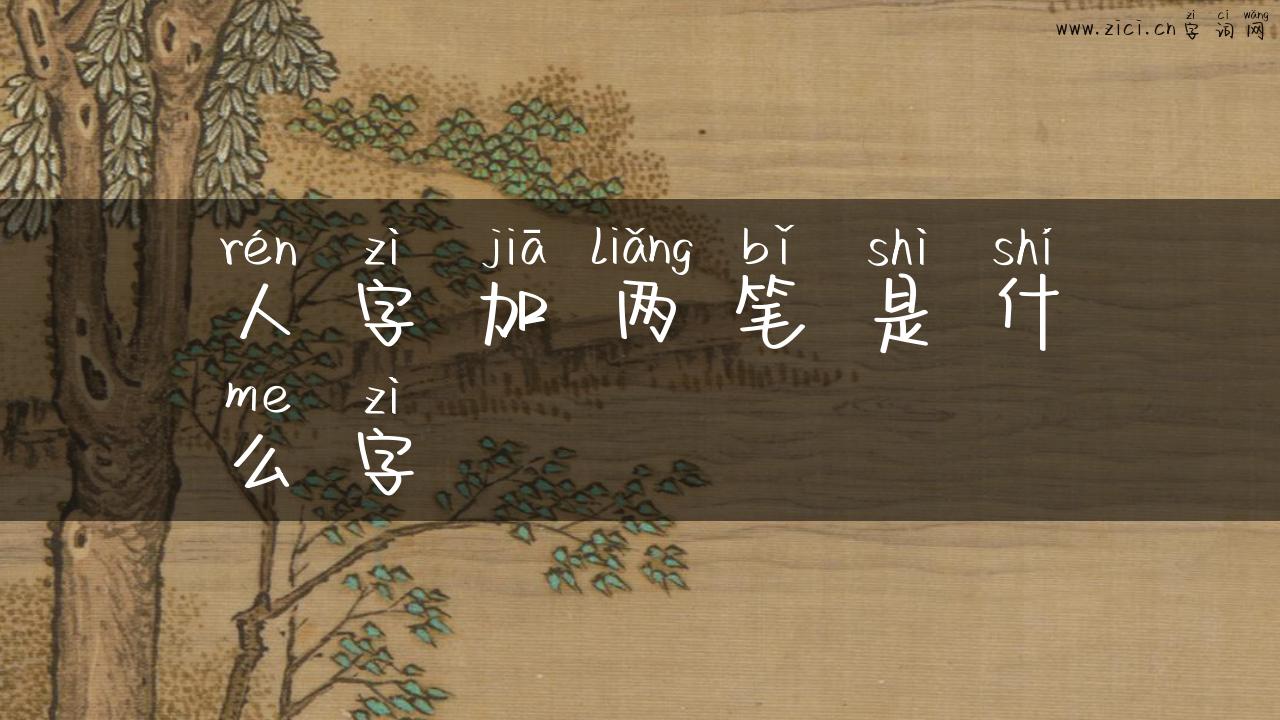 zì cí wǎng
www.zici.cn 字词网
rén zì jiā liǎng bǐ shì shí
人字加两笔是什
me zì
么字